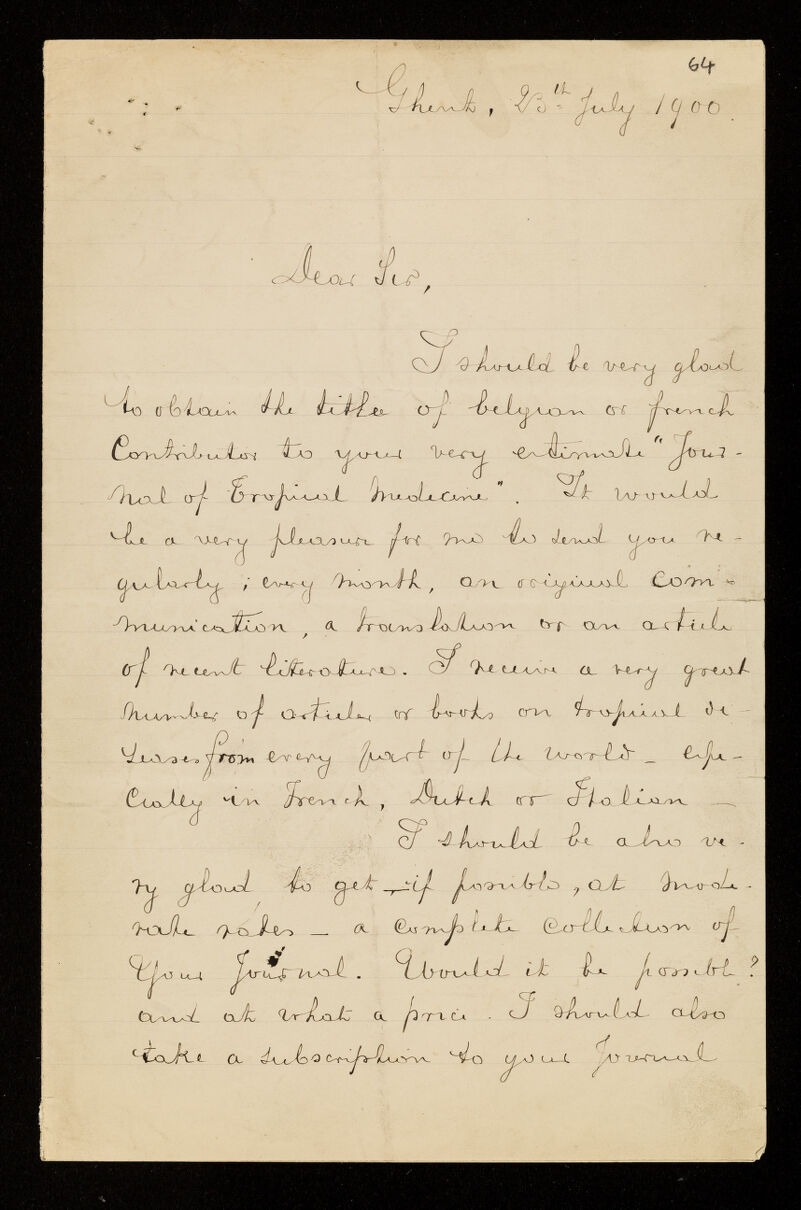 64
Ghent, 23th July 1900.
Dear Sir,
I should be very glad
to obtain the title of belgian or french
Contributor to your very estimate "Jour-
nal of Tropical Medecine". It would
be a very pleasure for me to send you re-
gularly, every month, an original com-
munication, a translation or an article
of recent literature. I receive a very great
number of articles or books on tropical di-
seases from every part of the world - espe-
cially in French, Dutch or Italian -
I should be also ve-
ry glad, to get - if possible, at mode-
rate rates - a complete collection of
Your Journal. Would it be possible?
and at what a price. I should also
take a subscription to your Journal